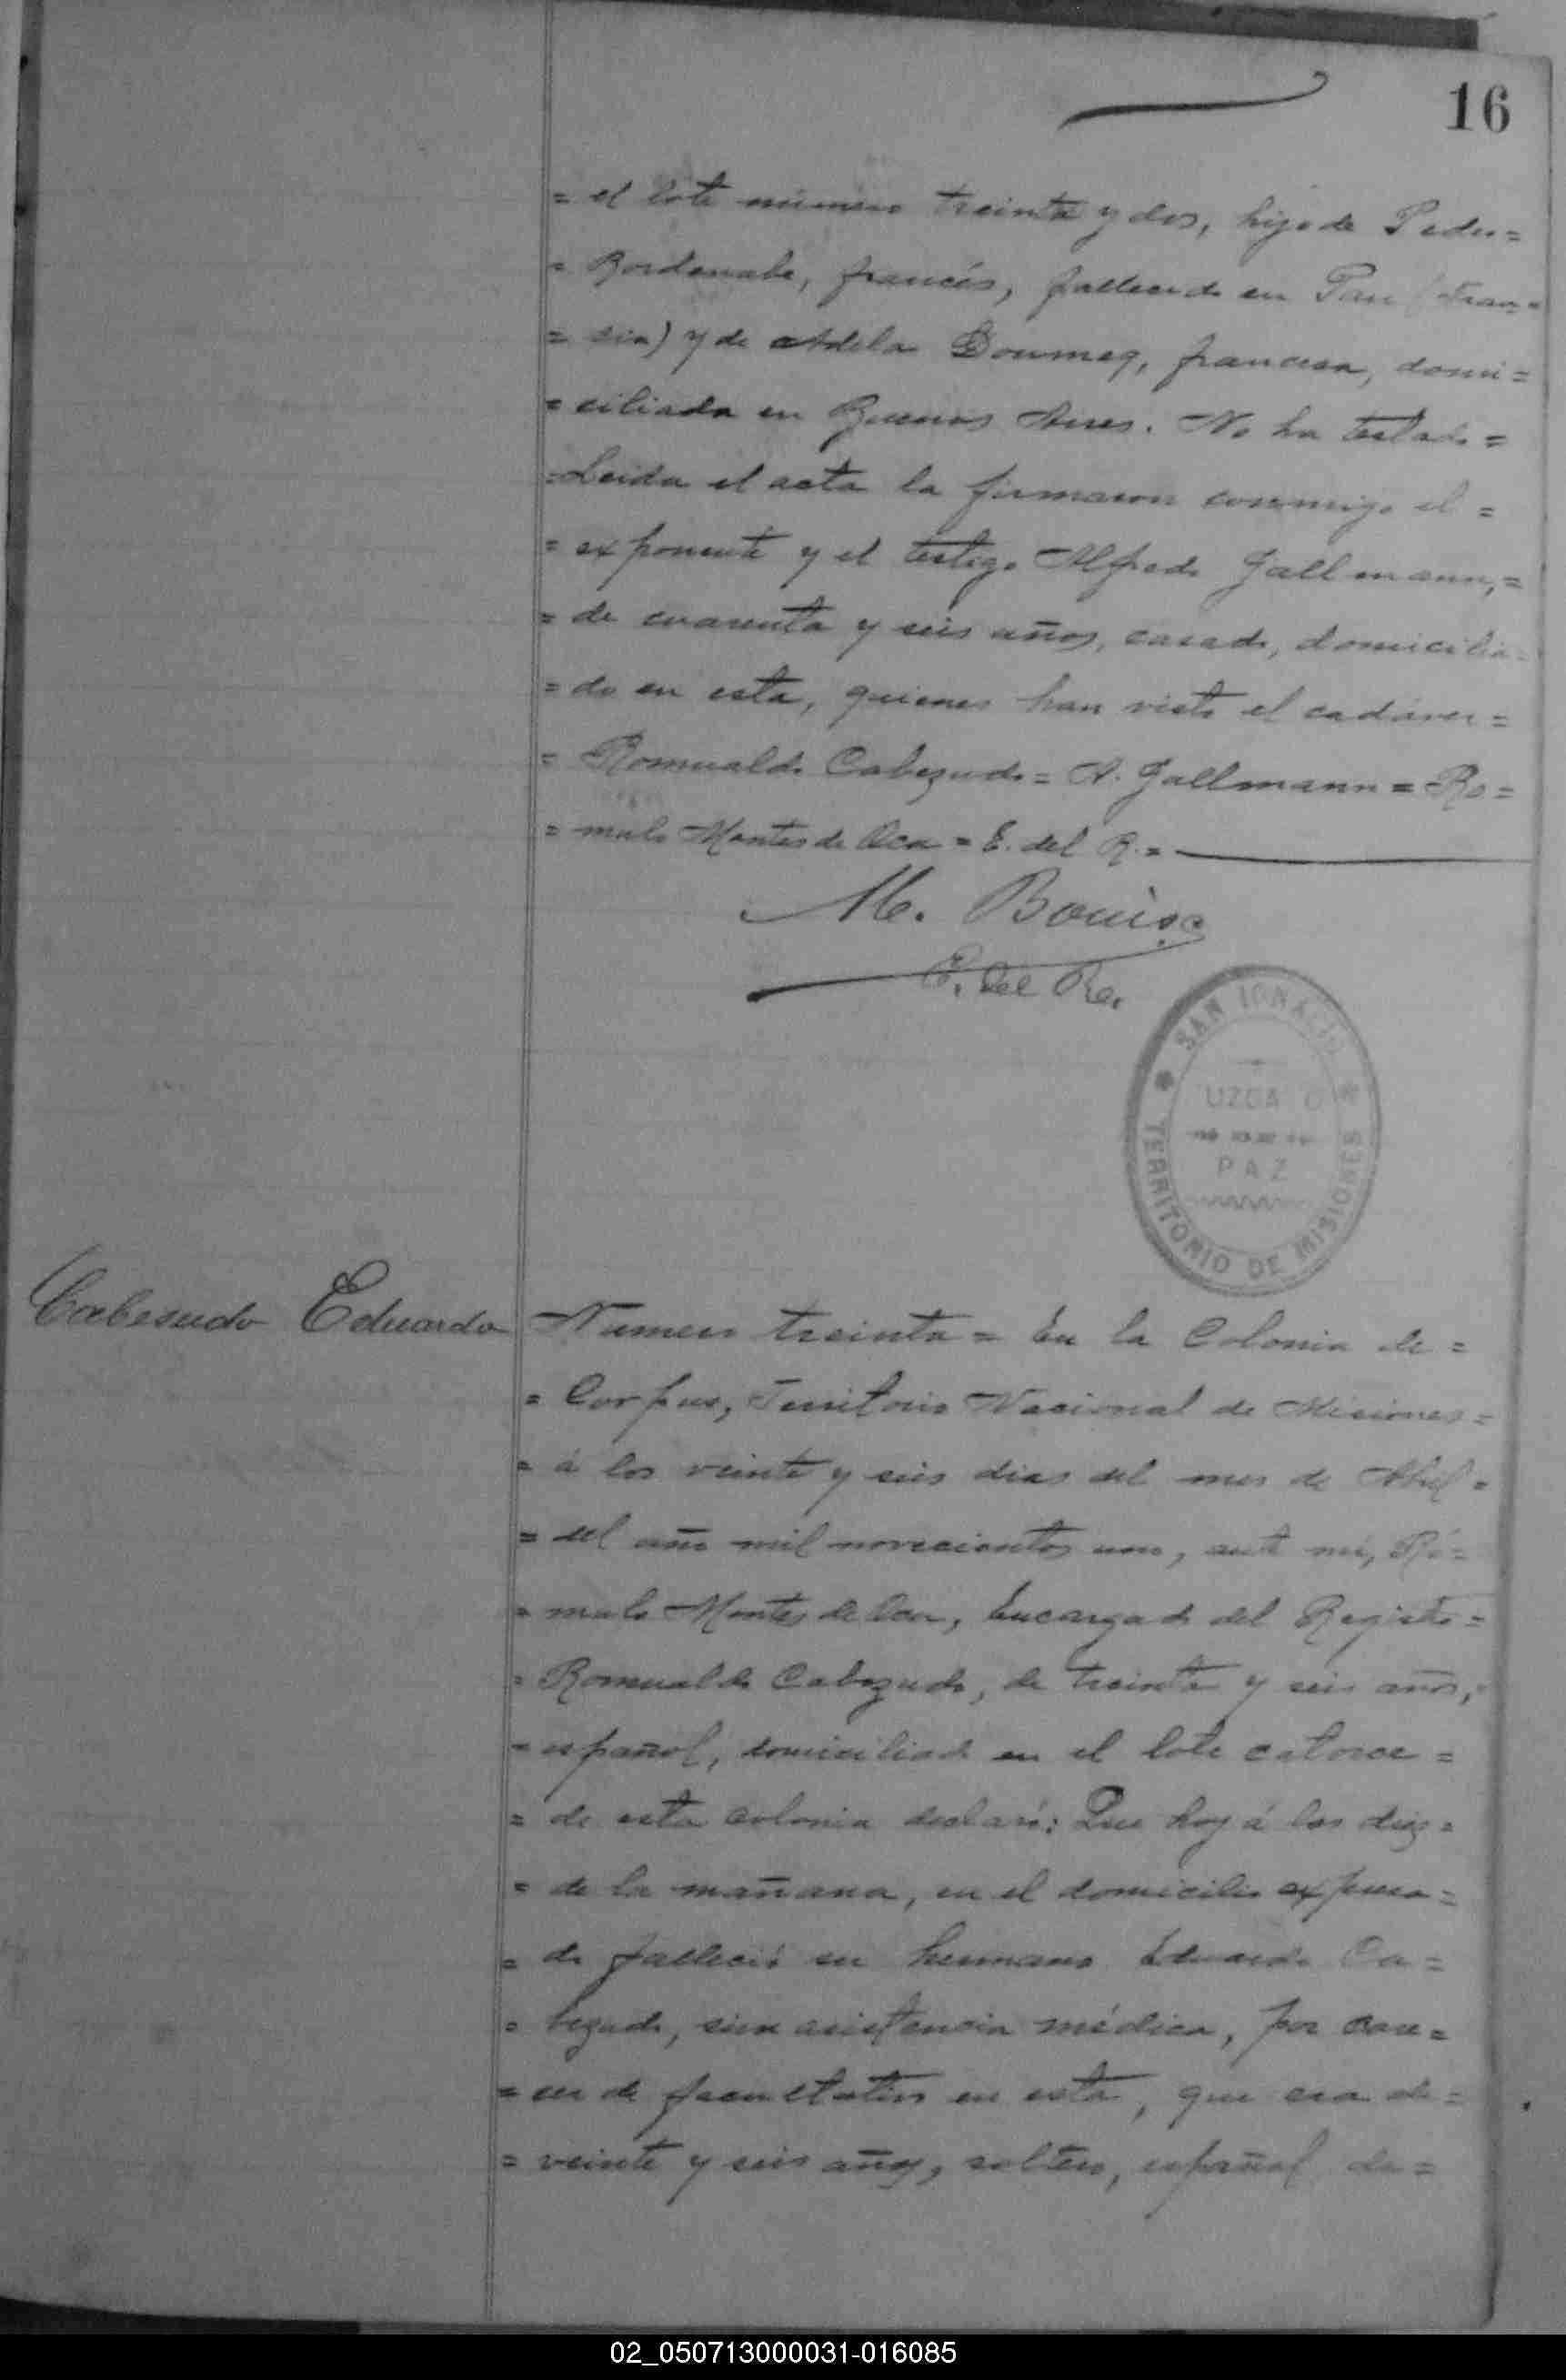 16
= el lote número treinta y dos, hijo de Pedro =
= Bordenabe, francés, fallecido en Pau (Fran =
= sia) y de Adela Doumeq, francesa, domi =
= ciliada en Buenos Aires. No ha testado =
= Leida el acta la firmaron conmigo el =
= exponente y el testigo Alfredo Gallmann, =
= de cuarenta y seis años, casado, domicilia =
= do en esta, quienes han visto el cadáver =
= Romualdo Cabezudo = A. Gallmann = Ro =
= mulo Montes de Oca = E. del R. =
M.
E. del Re.
SAN IGNACIO
UZGA O
PAZ
TERRITORIO DE MISIONES
Cabesudo Eduardo
Numero treinta = En la Colonia de =
= Corpus, Territorio Nacional de Misiones =
= á los veinte y seis dias del mes de Abril =
= del año mil novecientos uno, ante mi, Ró =
= mulo Montes de Oca, Encargado del Registro =
= Romualdo Cabezudo, de treinta y seis años, =
= español, domiciliado en el lote catorce =
= de esta colonia declaró: Que hoy á las diez =
= de la mañana, en el domicilio expresa =
= do falleció su hermano Eduardo Ca =
= bezudo, sin asistencia médica, por care =
= cer de facultativo en esta, que era de =
= veinte y seis años, soltero, español de =
02_050713000031-016085